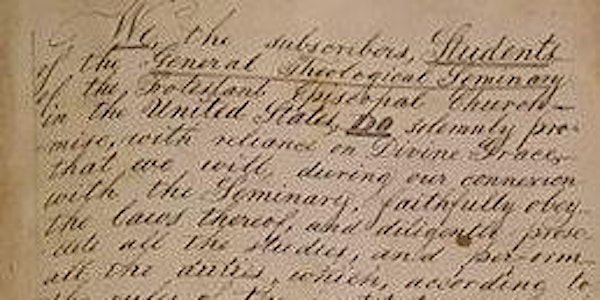 We, the subscribers, Students
of the General Theological Seminary
of the Protestant Episcopal Church
in the United States, Do solemnly pro-
mise, with reliance on Divine Grace,
that we will, during our connexion
with the Seminary, faithfully obey
the laws thereof, and diligently prose-
cute all the studies, and perform
all the duties, which, according to
the rules of